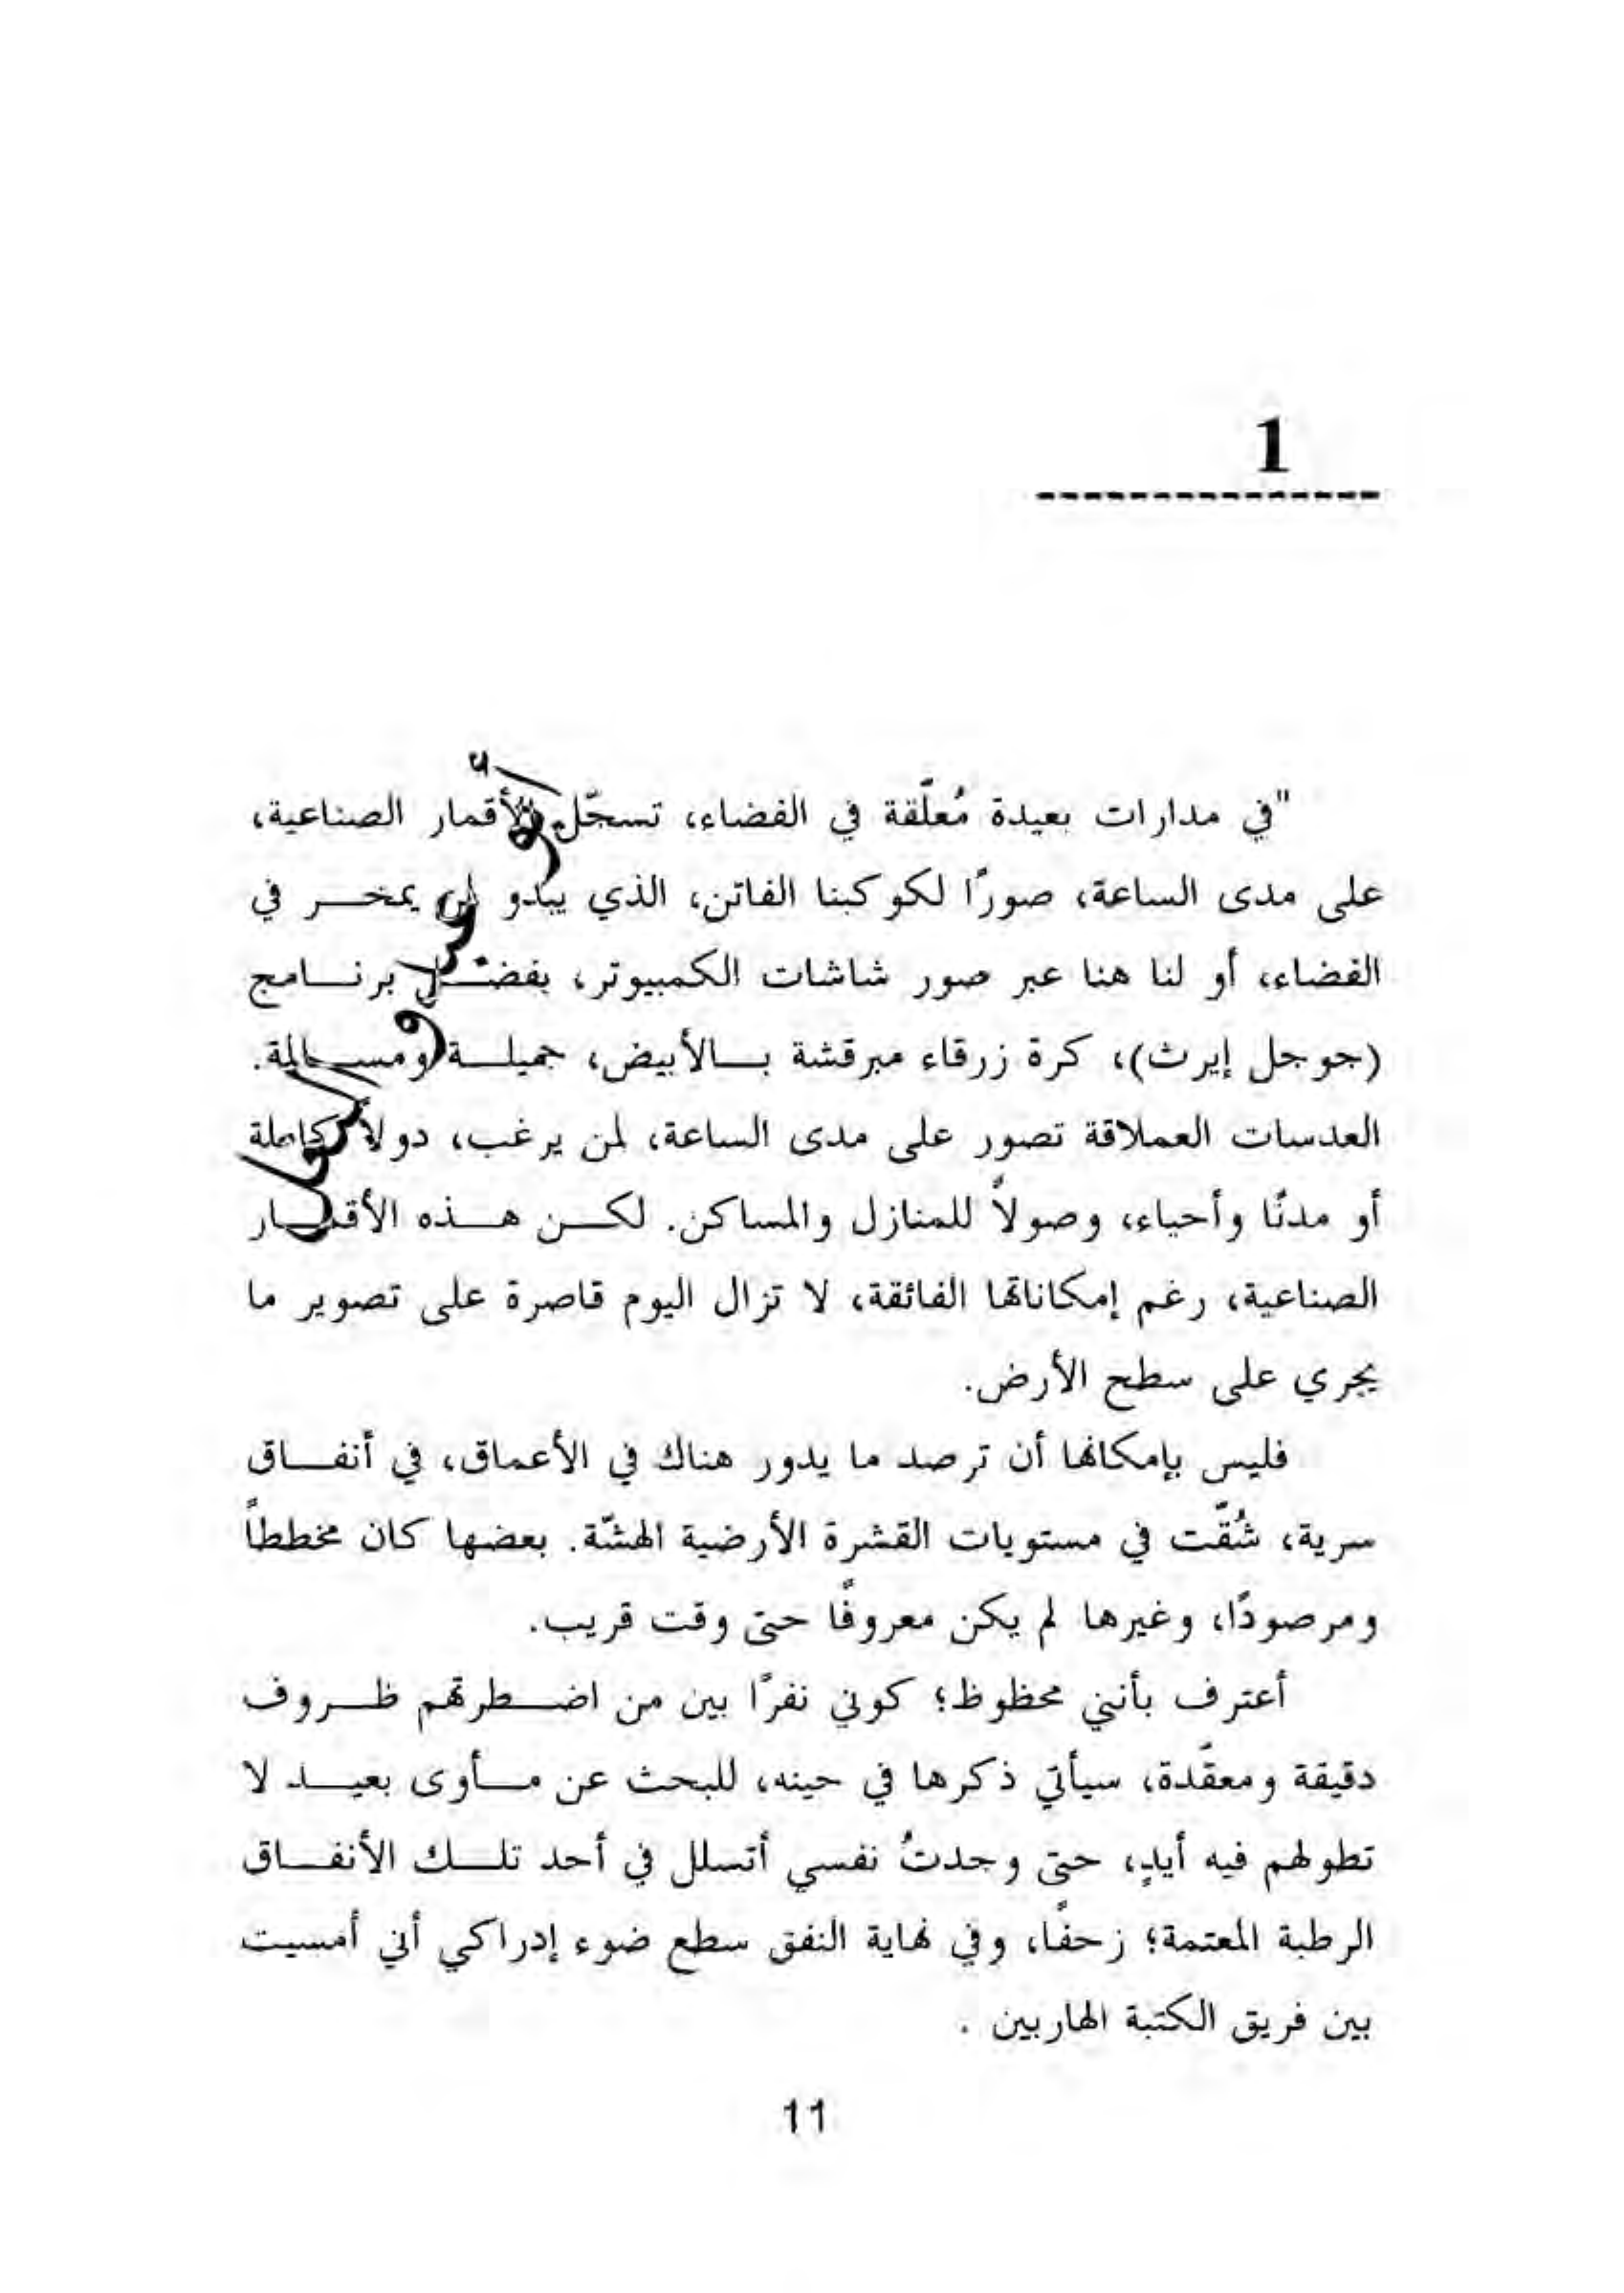 1
"في مدارات بعيدة مُعلّقة في الفضاء، تسجّل الأقمار الصناعية،
على مدى الساعة، صورًا لكوكبنا الفاتن، الذي يبدو لمن يمخر في
الفضاء، أو لنا هنا عبر صور شاشات الكمبيوتر، بفضل برنامج
(جوجل إيرث)، كرة زرقاء مبرقشة بالأبيض، جميلة ومسالمة.
العدسات العملاقة تصور على مدى الساعة، لمن يرغب، دولاً كاملة
أو مدنًا وأحياء، وصولاً للمنازل والمساكن. لكن هذه الأقمار
الصناعية، رغم إمكاناتها الفائقة، لا تزال اليوم قاصرة على تصوير ما
يجري على سطح الأرض.
فليس بإمكانها أن ترصد ما يدور هناك في الأعماق، في أنفاق
سرية، شُقّت في مستويات القشرة الأرضية الهشّة. بعضها كان مخططاً
ومرصودًا، وغيرها لم يكن معروفًا حتى وقت قريب.
أعترف بأنني محظوظ؛ كوني نفرًا بين من اضطرتهم ظروف
دقيقة ومعقَدة، سيأتي ذكرها في حينه، للبحث عن مأوى بعيد لا
تطولهم فيه أيدٍ، حتى وجدتُ نفسي أتسلل في أحد تلك الأنفاق
الرطبة المعتمة؛ زحفًا، وفي نهاية النفق سطع ضوء إدراكي أني أمسيت
بين فريق الكتبة الهاربين .
11